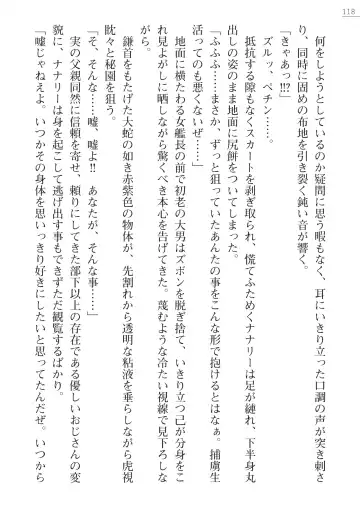 118
何をしようとしているのか疑問に思う暇もなく、耳にいきり立った口調の声が突き刺さ
り、同時に固めの布地を引き裂く鈍い音が響く。
「きゃあっ!!?」
ズルッ、ペチン……。
抵抗する隙もなくスカートを剥ぎ取られ、慌てふためくナナリーは足が縺れ、下半身丸
出しの姿のまま地面に尻餅をついてしまった。
「ふふふ……まさか、ずっと狙っていたあんたの事をこんな形で抱けるとはなぁ。捕虜生
活ってのも悪くないぜ……」
地面に横たわる女艦長の前で初老の大男はズボンを脱ぎ捨て、いきり立つ己が分身をこ
れ見よがしに晒しながら驚くべき本心を告げてきた。蔑むような冷たい視線で見下ろしな
がら。
鎌首をもたげた大蛇の如き赤紫色の物体が、先割れから透明な粘液を垂らしながら虎視
眈々と秘園を狙う。
「そ、そんな……嘘、嘘よ!!　あなたが、そんな事……」
実の父親同然に信頼を寄せ、頼りにしてきた部下以上の存在である優しいおじさんの変
貌に、ナナリーは身を起こして逃げ出す事もできずただ観覧するばかり。
『嘘じゃねえよ。いつかその身体を思いっきり好きにしたいと思ってたんだぜ。いつから